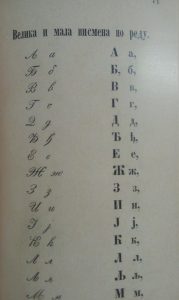 Велика и мала писмена по реду.
А а А а,
Б б Б б,
В в В в,
Г г Г г,
Д д Д д,
Ђ ђ Ђ ђ,
Е е Е е,
Ж ж Ж ж,
З з З з,
И и И и,
Ј ј Ј ј,
К к К к,
Л л Л л,
Љ љ Љ љ,
М м М м,